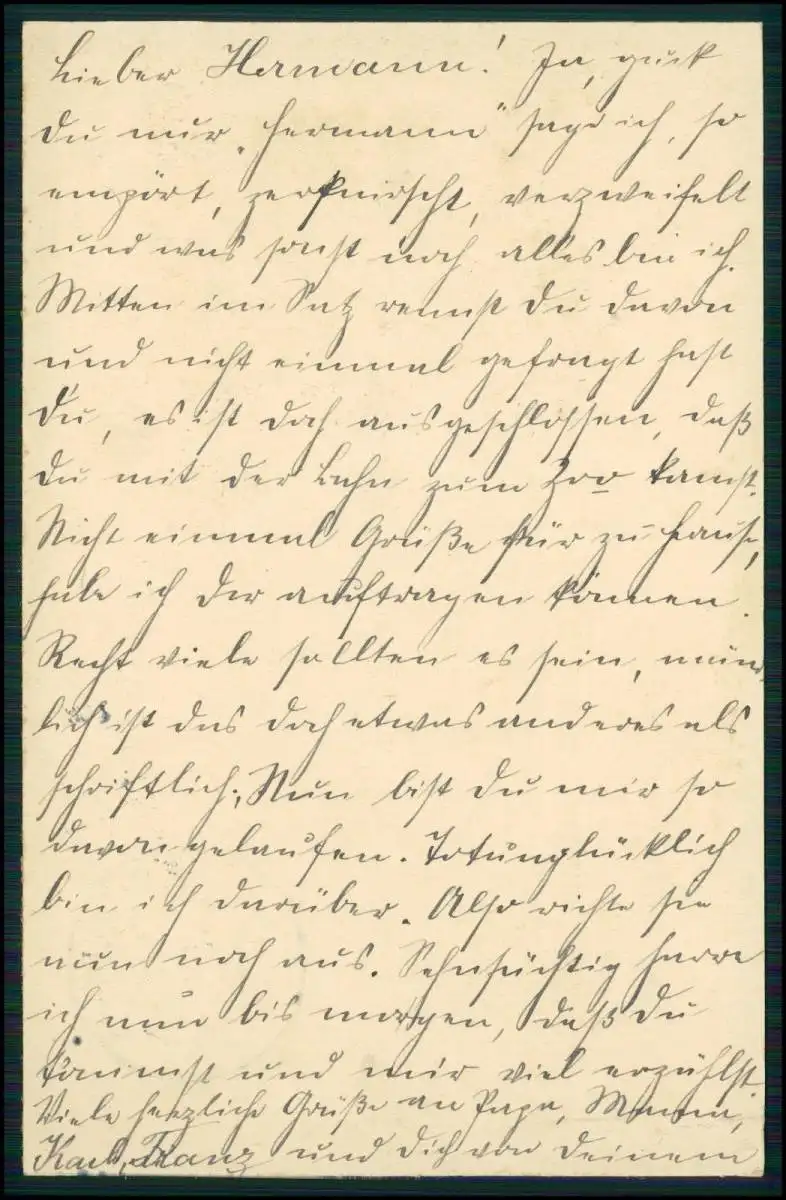 Lieber Hermann! Ja, guck
Du nur „Hermann" sage ich, so
empört, zerknirscht, verzweifelt
und was sonst noch alles bin ich.
Mitten im Satz rennst Du davon
und nicht einmal gefragt hast
Du, es ist doch ausgeschlossen, daß
Du mit der Bahn zum Zoo kamst.
Nicht einmal Grüße für zu Hause,
habe ich Dir auftragen können.
Recht viele sollten es sein, münd-
lich ist das doch etwas anderes als
schriftlich; Nun bist Du mir so
davon gelaufen. Totunglücklich
bin ich darüber. Also richte sie
nun noch aus. Sehnsüchtig harre
ich nun bis morgen, daß Du
kommst und mir viel erzählst.
Viele herzliche Grüße an Papa, Mama,
Karl, Franz und Dich von Deinem